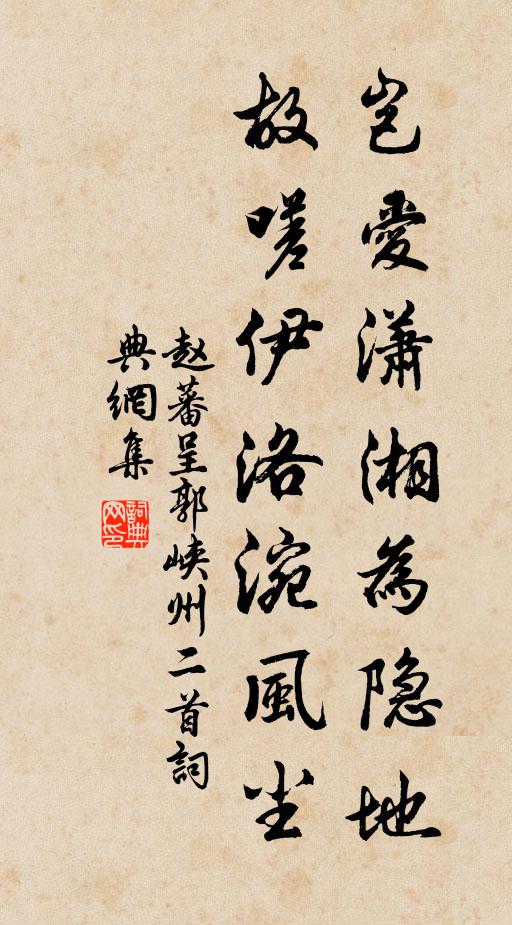 岂愛瀟湘為隐地
故嗟伊洛涴風尘
赵蕃呈郭峡州二首詞
典網集
詞典网印